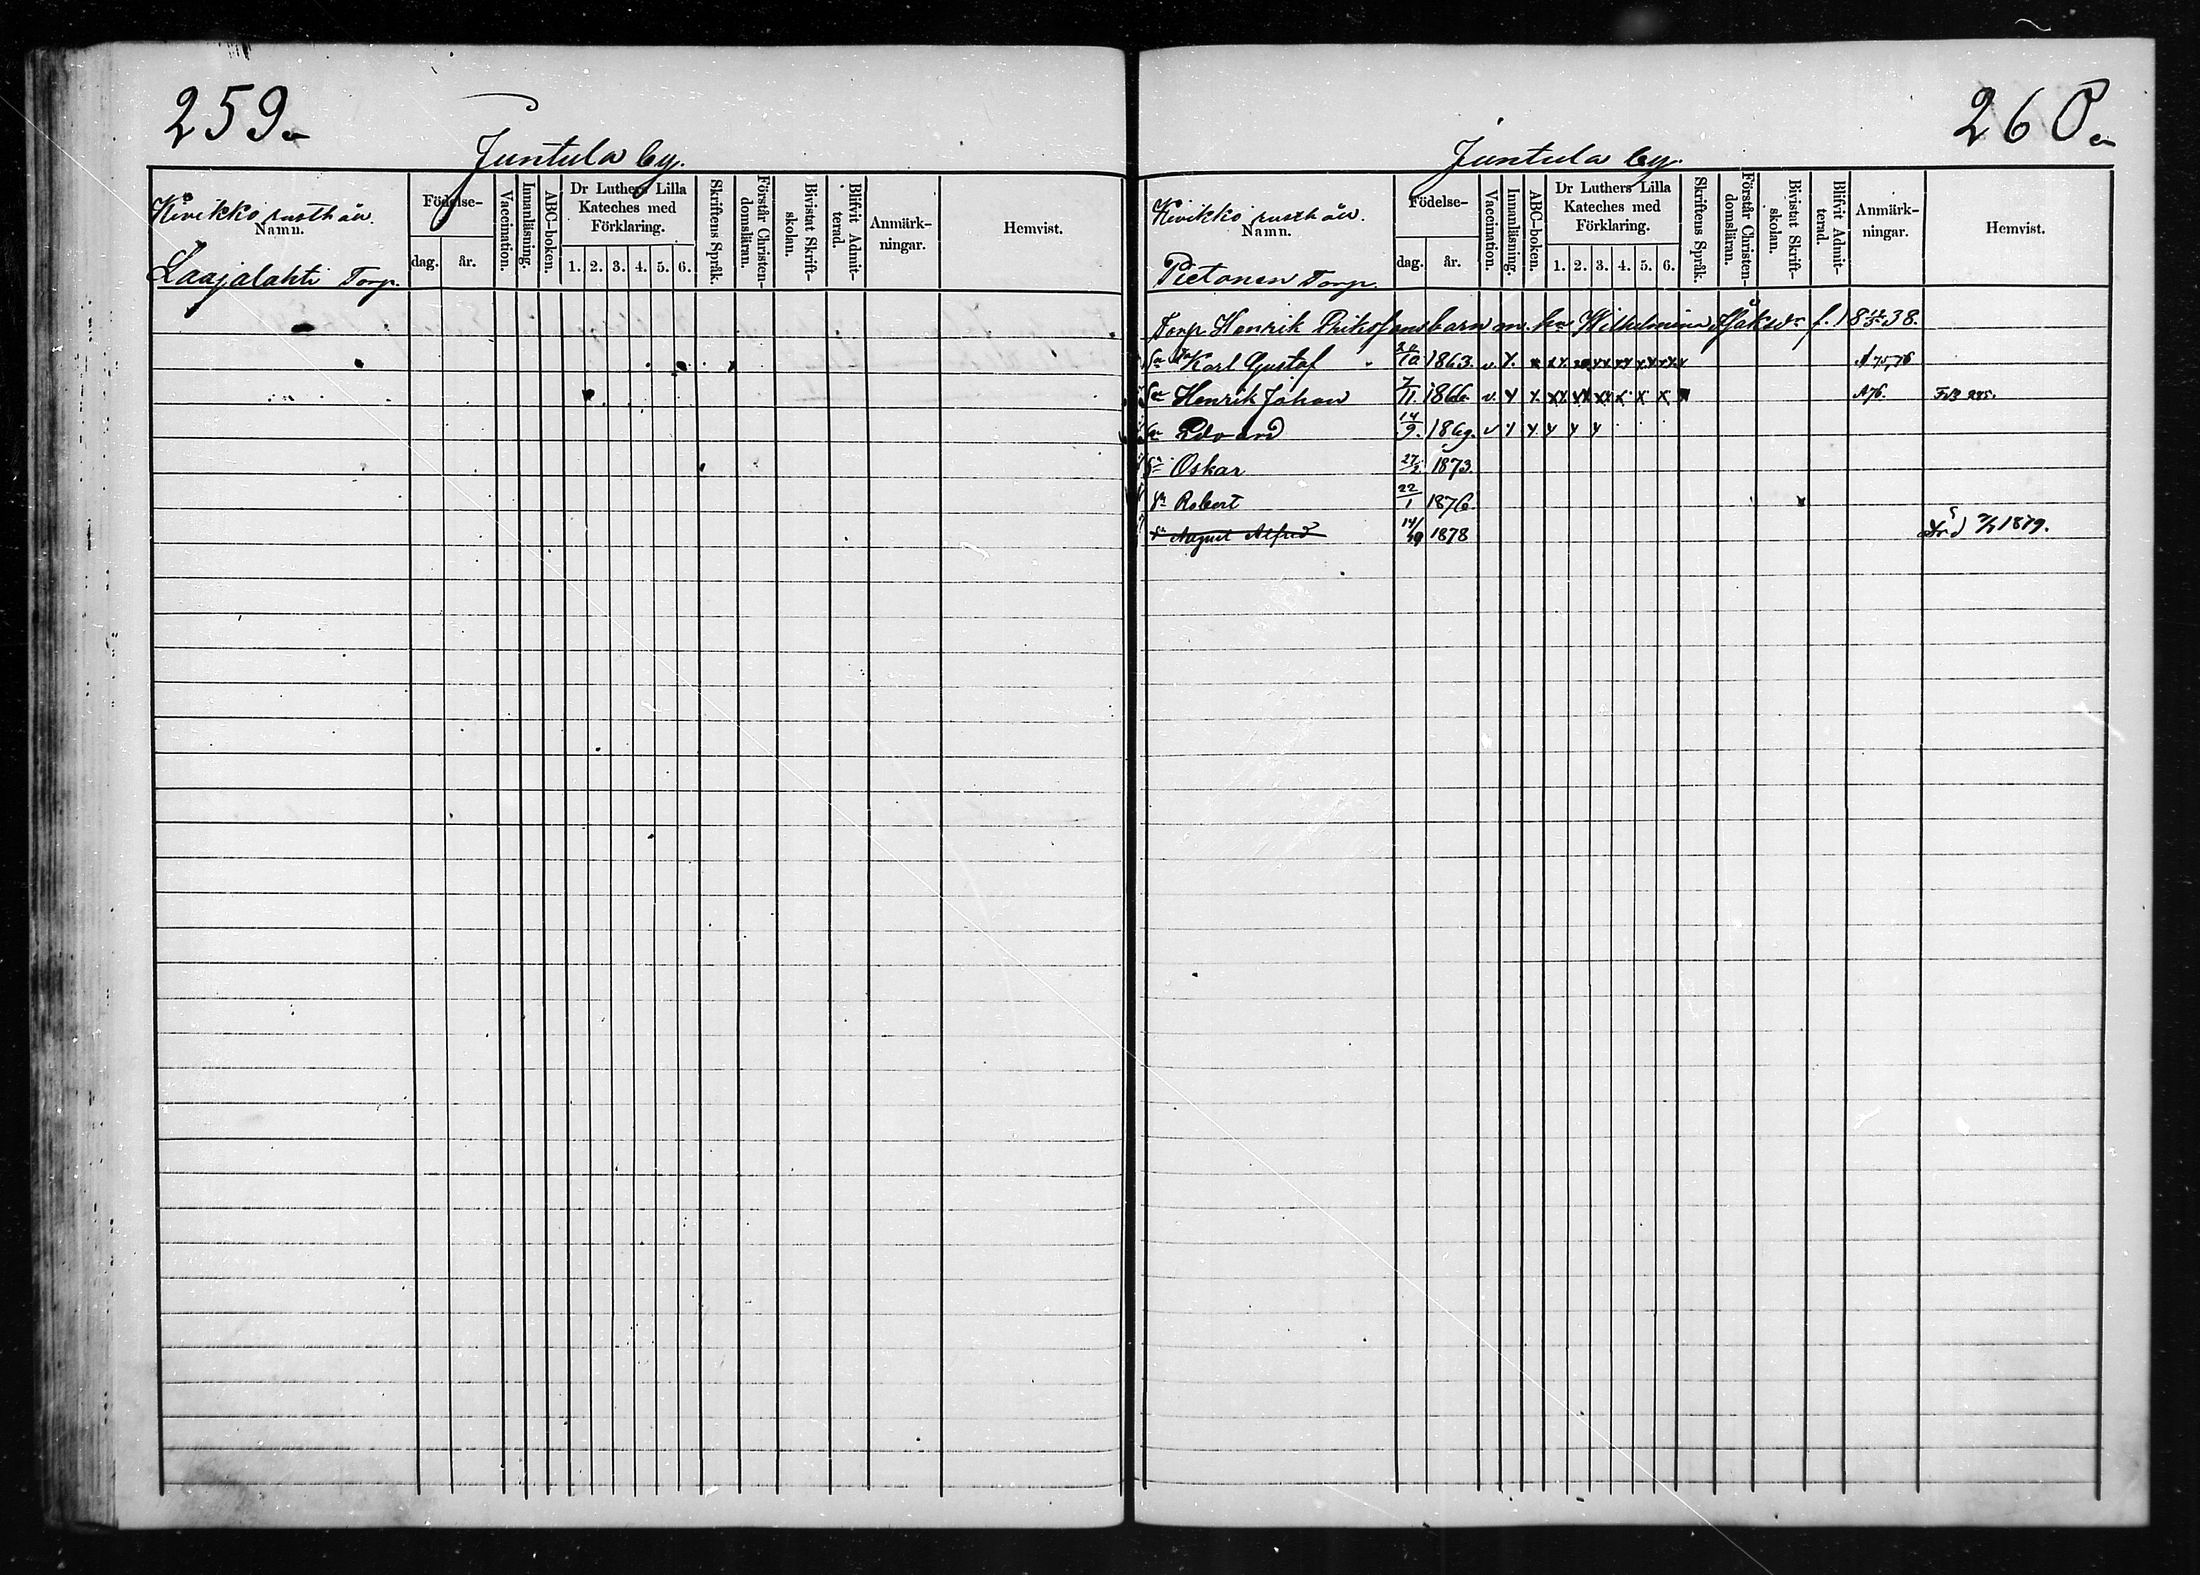 259.
Juntula by.
Kivikko rusthåll.
Namn.
Laajalahti Torp.
Födelse-
dag. år.
Vaccination.
Innanläsning.
ABC-boken.
Dr Luthers Lilla
Kateches med
Förklaring.
1. 2. 3. 4. 5. 6.
Skriftens Språk.
Förstår Christen-
domsläran.
Bivistat Skrift-
skolan.
Blifvit Admit-
terad.
Anmärk-
ningar.
Hemvist.
260.
Juntula by.
Kivikko rusthåll.
Namn.
Pietonen Torp.
Födelse-
dag. år.
Vaccination.
Innanläsning.
ABC-boken.
Dr Luthers Lilla
Kateches med
Förklaring.
1. 2. 3. 4. 5. 6.
Skriftens Språk.
Förstår Christen-
domsläran.
Bivistat Skrift-
skolan.
Blifvit Admit-
terad.
Anmärk-
ningar.
Hemvist.
Torp Henrik barn m. hu Wilhelmina f. 18 38.
Sn Karl Gustaf 24/10 1863. v. x. A 75, 76
Sn Henrik Johan 7/11. 1866. v. x x A 76.
Sn Edvard 14/9. 1869. v x x x x x
Sn Oskar 27/2. 1873.
Sn Robert 22/1 1876.
Sn August Alfred 14/ 1878 1879.